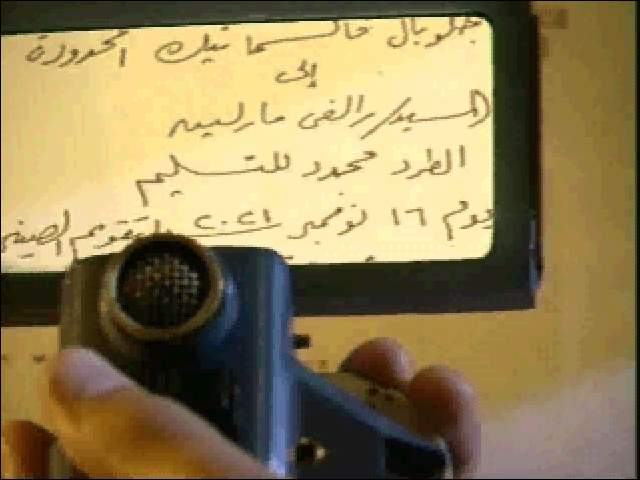 جلوبال فالسماتيك المحدودة
إلى
السيد/ رالفى مارلييه
الطرد محدد للتسليم
يوم ١٦ نوفمبر ٢٠٢١ بالتقويم الصينى